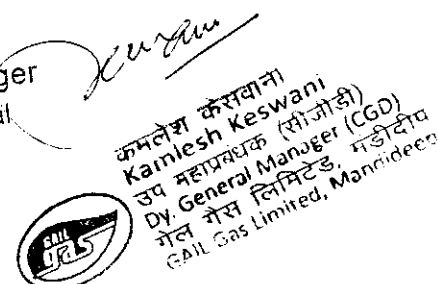 ger
कमलेश केसवानी
Kamlesh Keswani
उप महाप्रबंधक (सीजीडी)
Dy. General Manager (CGD)
गेल गैस लिमिटेड, मंडीदीप
GAIL Gas Limited, Mandideep
GAIL
gas